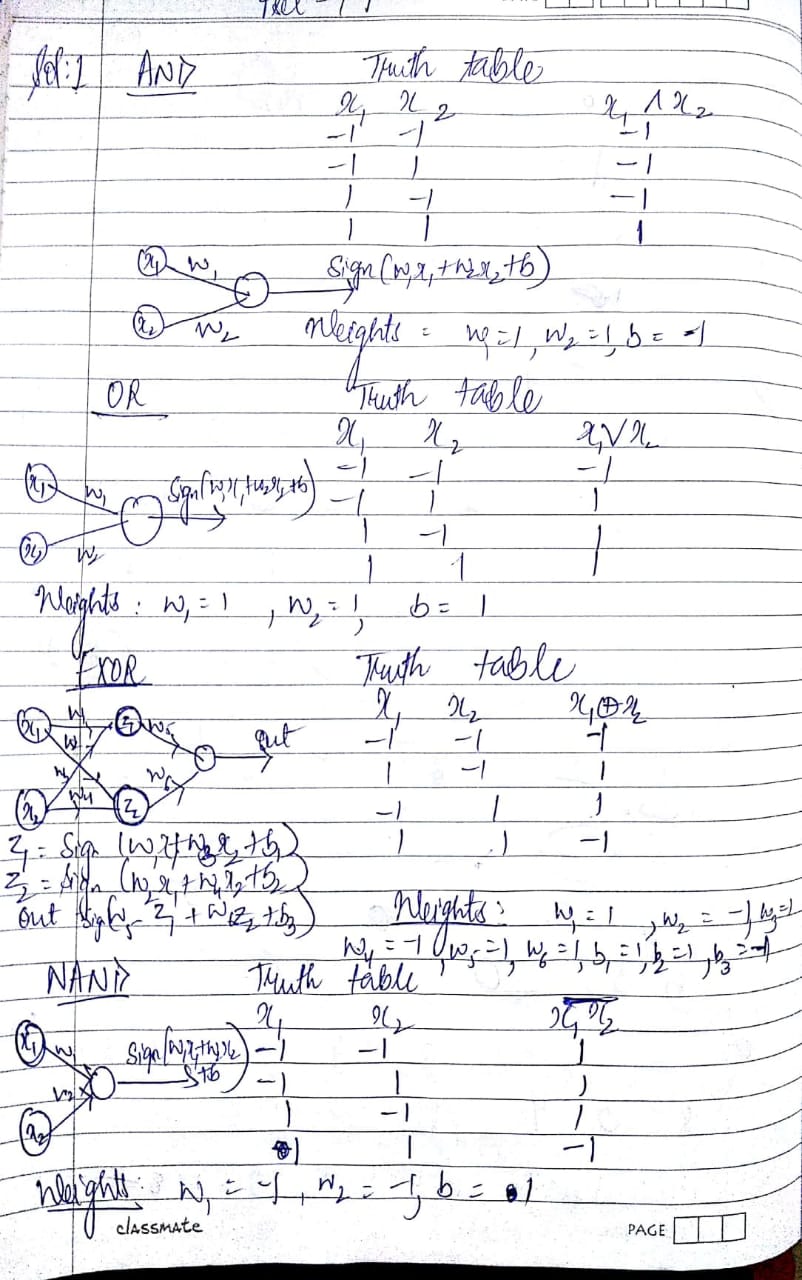 Sol:1 AND Truth table
x₁ x₂ x₁ ∧ x₂
-1 -1 -1
-1 1 -1
1 -1 -1
1 1 1
x₁ w₁ Sign(w₁x₁+w₂x₂+b)
x₂ w₂ Weights = w₁=1, w₂=1, b= -1
OR Truth table
x₁ x₂ x₁∨x₂
-1 -1 -1
x₁ w₁ Sign(w₁x₁+w₂x₂+b) -1 1 1
1 -1 1
x₂ w₂ 1 1
Weights : w₁ = 1 , w₂ = 1, b = 1
EXOR Truth table
x₁ x₂ x₁⊕x₂
x₁ w₁ z₁ w₅ out -1 -1 -1
1 -1 1
x₂ w₄ z₂ w₆ -1 1 1
1 1 -1
z₁ = Sign (w₁x₁+w₃x₂+b₁)
z₂ = Sign (w₂x₁+w₄x₂+b₂)
out Sign(w₅ z₁ + w₆z₂ +b₃) Weights: w₁ = 1 , w₂ = -1, w₃=1
w₄ = -1, w₅=1, w₆=1, b₁=1, b₂=1, b₃=-1
NAND Truth table
x₁ x₂ x̅₁x̅₂
x₁ w₁ Sign(w₁x₁+w₂x₂+b) -1 -1 1
-1 1 1
1 -1 1
x₂ 1 1 -1
Weights: w₁ = -1, w₂ = -1, b = 1
classmate
PAGE